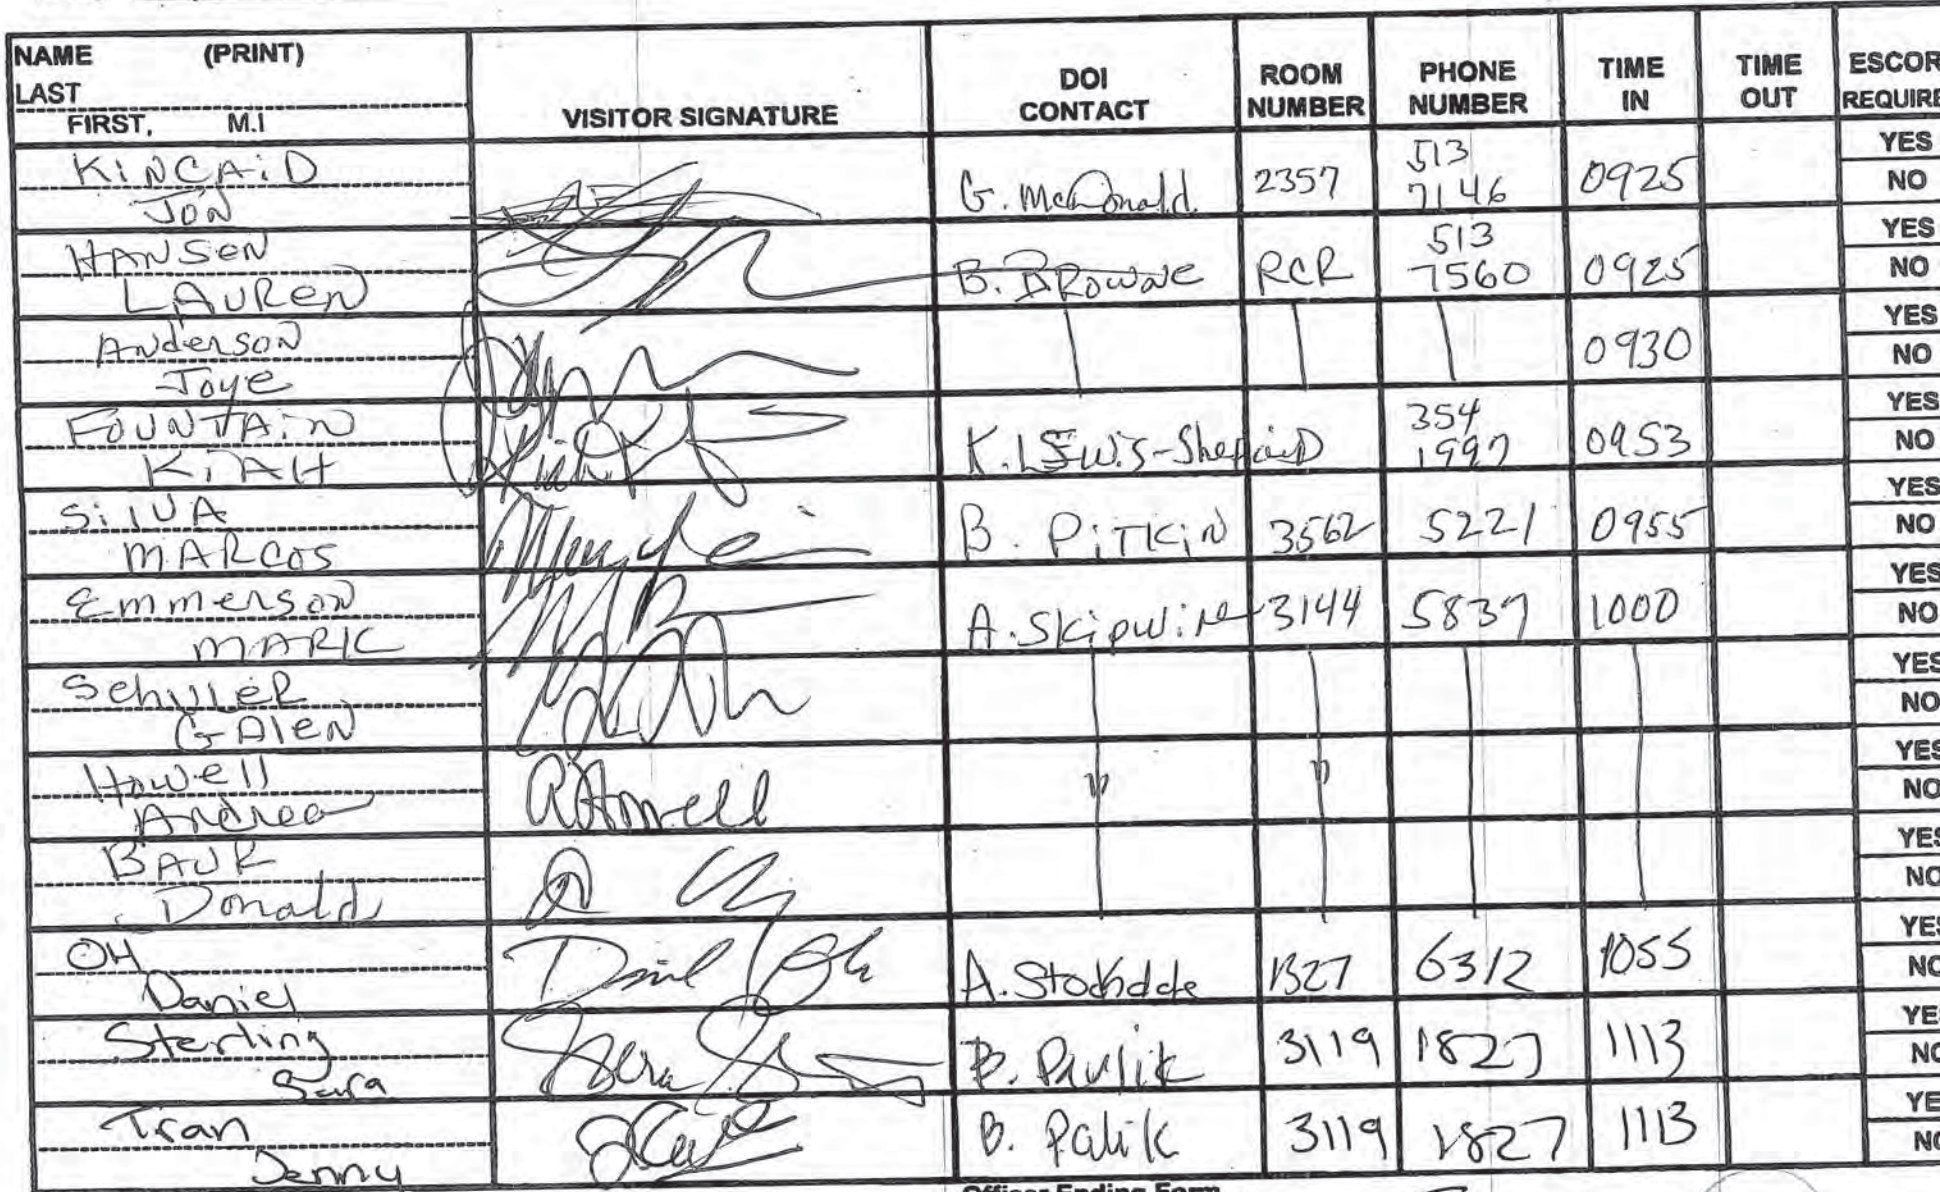 NAME (PRINT)
LAST
FIRST, M.I
VISITOR SIGNATURE
DOI CONTACT
ROOM NUMBER
PHONE NUMBER
TIME IN
TIME OUT
ESCOR
REQUIRE
KINCAID
JON
G. McDonald
2357
513
7146
0925
YES
NO
HANSEN
LAUREN
B. BROWNE
RCR
513
7560
0925
YES
NO
Anderson
Joye
0930
YES
NO
FOUNTAIN
KIAH
K. LEWIS-Shepard
354
1997
0953
YES
NO
SILVA
MARCOS
B. PITKIN
3562
5221
0955
YES
NO
Emmerson
MARK
A. Skipwith
3144
5837
1000
YES
NO
Schuler
GALEN
YES
NO
Howell
Andrea
AHowell
YES
NO
BAUR
Donald
YES
NO
OH
Daniel
Daniel Oh
A. Stockdale
1327
6312
1055
YES
NO
Sterling
Sara
B. Pavlik
3119
1827
1113
YES
NO
Tran
Jenny
B. Palik
3119
1827
1113
YE
NO
Officer Ending Form